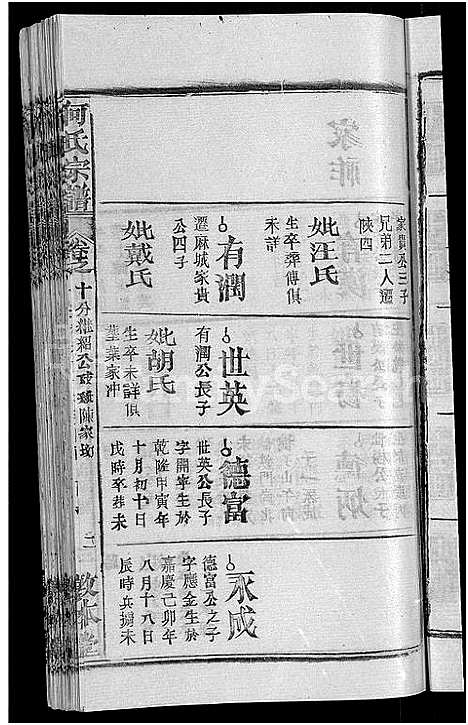 何氏宗譜
卷之
二
敦本堂
家貴公三子
兄弟二人遷
陝四
妣汪氏
生卒葬傳俱
未詳
有潤
遷麻城家貴
公四子
妣戴氏
世英
有潤公長子
妣胡氏
生卒未詳俱
葬葉家冲
德富
世英公長子
字開寧生於
乾隆甲寅年
十月初十日
戌時卒葬未
永成
德富公之子
字應金生於
嘉慶己卯年
八月十八日
辰時兵擄未